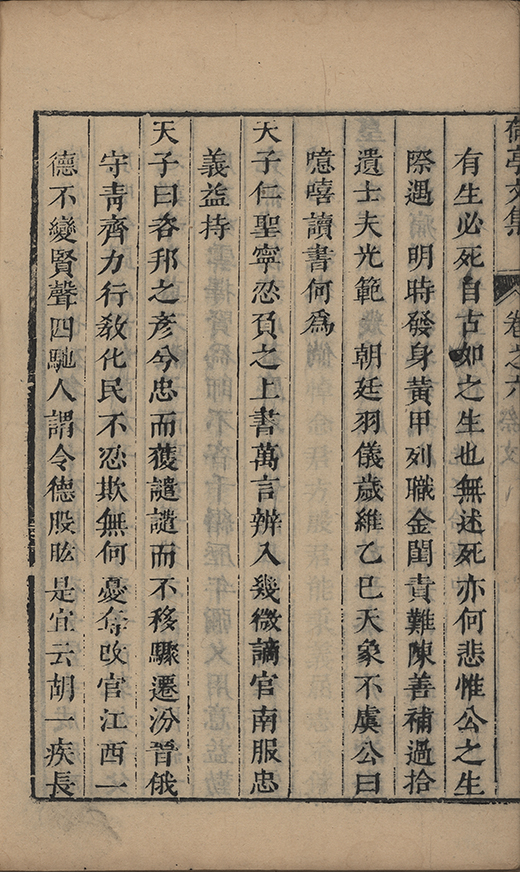 荷亭文集 卷之六 祭文
有生必死自古如之生也無述死亦何悲惟公之生
際遇 明時發身黃甲列職金閨責難陳善補過拾
遺士夫光範 朝廷羽儀歲維乙巳天象不虞公曰
噫嘻讀書何爲
天子仁聖寧忍負之上書萬言辨入幾微謫官南服忠
義益持
天子曰咨邦之彥兮忠而獲譴譴而不移驟遷汾晉俄
守青齊力行敎化民不忍欺無何憂奪改官江西一
德不變賢聲四馳人謂令德股肱是宜云胡一疾長